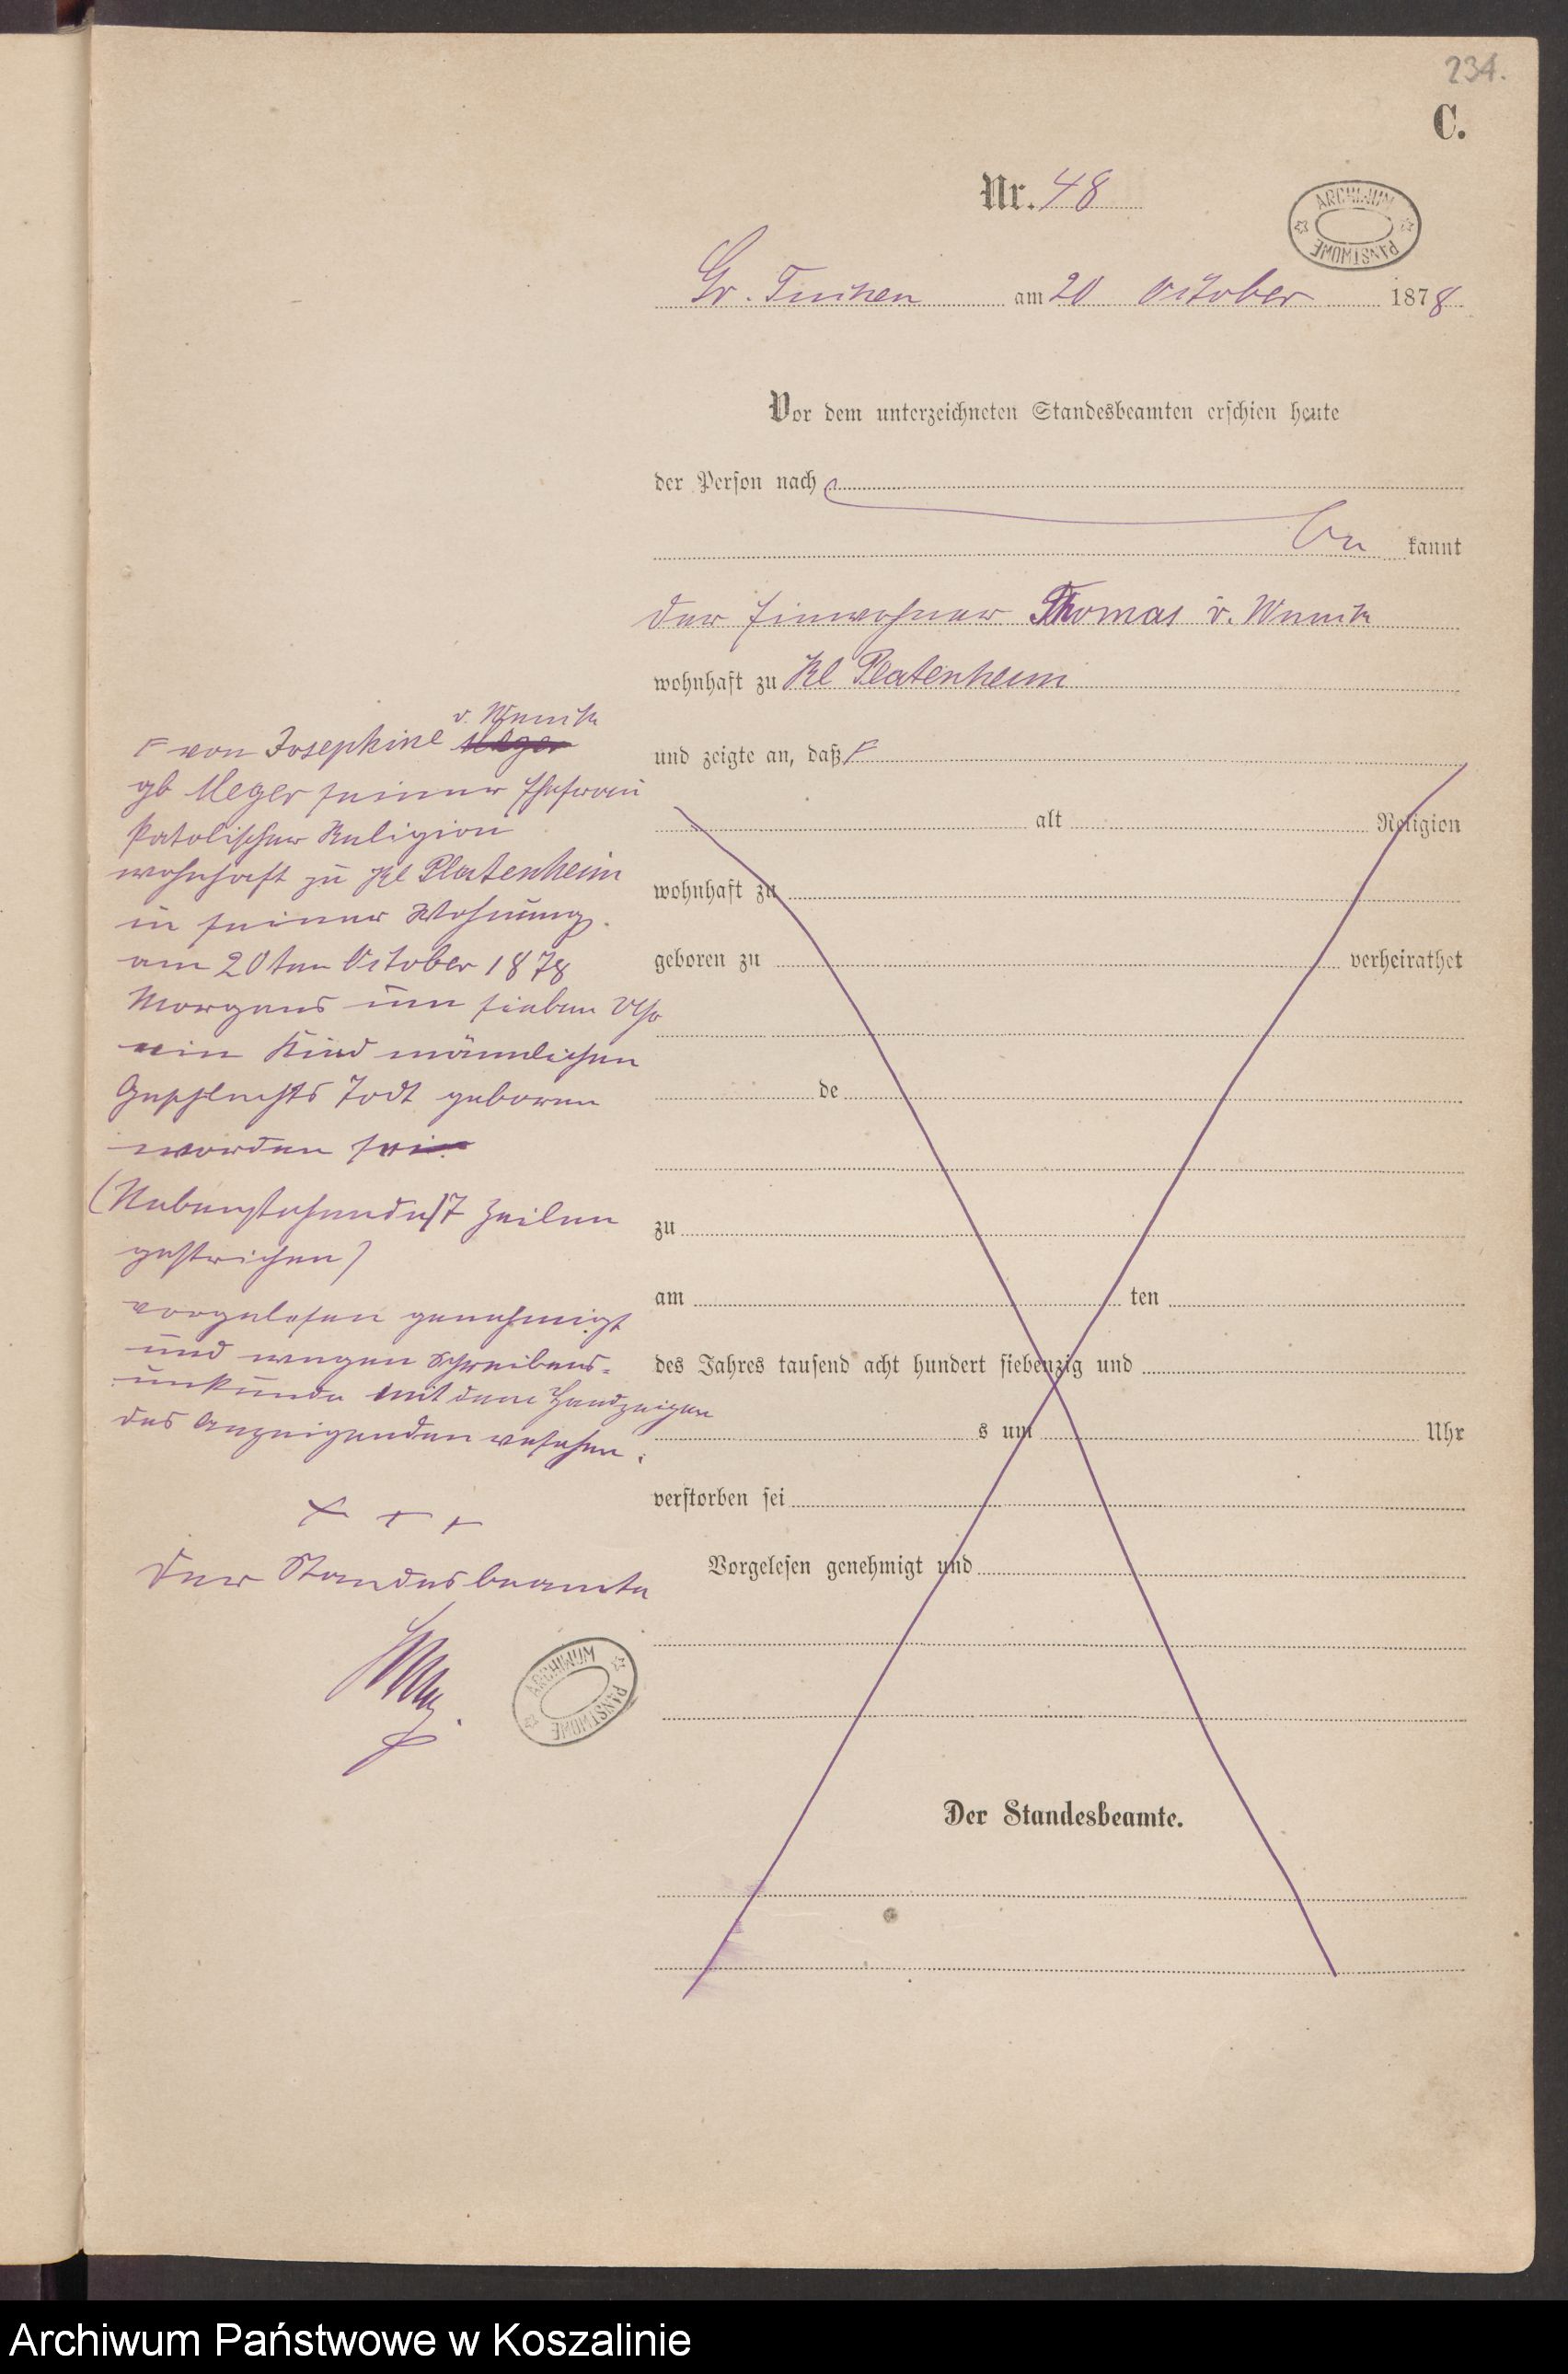 234.
C.
Nr. 48
ARCHIWUM PAŃSTWOWE
Gr. Tuchen am 20 October 1878
Vor dem unterzeichneten Standesbeamten erschien heute
der Person nach
be kannt
der Einwohner Thomas v. Wnuck
wohnhaft zu Kl Platenheim
und zeigte an, daß F
alt Religion
wohnhaft zu
geboren zu verheirathet
de
zu
am ten
des Jahres tausend acht hundert siebenzig und
s um Uhr
verstorben sei
Vorgelesen genehmigt und
Der Standesbeamte.
v. Wnuck
F von Josephine Meger
gb Meger seiner Ehefrau
katolischer Religion
wohnhaft zu Kl Platenheim
in seiner Wohnung.
am 20ten October 1878
Morgens um sieben Uhr
ein Kind männlichen
Geschlechts todt geboren
worden sei.
(Nebenstehende 17 Zeilen
gestrichen)
vorgelesen genehmigt
und wegen Schreibens-
unkunde mit dem Handzeigen
des Anzeigenden vesehen.
+ + +
Der Standesbeamte
ARCHIWUM PAŃSTWOWE
Archiwum Państwowe w Koszalinie